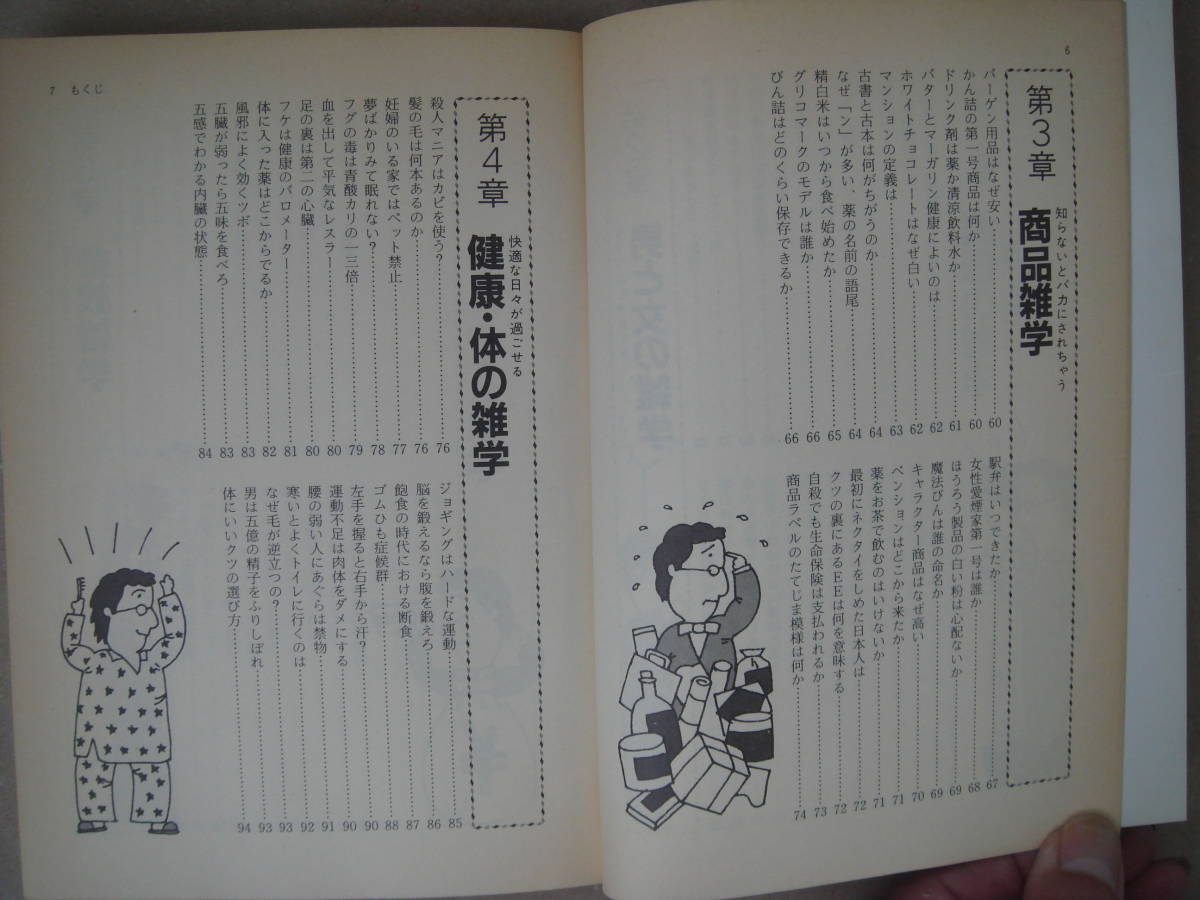 6
第3章 知らないとバカにされちゃう
商品雑学
バーゲン用品はなぜ安い……60
かん詰の第一号商品は何か……60
ドリンク剤は薬か清涼飲料水か……61
バターとマーガリン健康によいのは……62
ホワイトチョコレートはなぜ白い……62
マンションの定義は……63
古書と古本は何がちがうのか……64
なぜ「ン」が多い、薬の名前の語尾……64
精白米はいつから食べ始めたか……65
グリコマークのモデルは誰か……66
びん詰はどのくらい保存できるか……66
駅弁はいつできたか……67
女性愛煙家第一号は誰か……68
ほうろう製品の白い粉は心配ないか……69
魔法びんは誰の命名か……69
キャラクター商品はなぜ高い……70
ペンションはどこから来たか……71
薬をお茶で飲むのはいけないか……71
最初にネクタイをしめた日本人は……72
クツの裏にあるEEは何を意味する……72
自殺でも生命保険は支払われるか……73
商品ラベルのたてじま模様は何か……74
第4章 快適な日々が過ごせる
健康・体の雑学
殺人マニアはカビを使う？……76
髪の毛は何本あるのか……76
妊婦のいる家ではペット禁止……77
夢ばかりみて眠れない？……78
フグの毒は青酸カリの一三倍……79
血を出して平気なレスラー……80
足の裏は第二の心臓……80
フケは健康のバロメーター……81
体に入った薬はどこからでるか……82
風邪によく効くツボ……83
五臓が弱ったら五味を食べろ……83
五感でわかる内臓の状態……84
ジョギングはハードな運動……85
脳を鍛えるなら腹を鍛えろ……86
飽食の時代における断食……87
ゴムひも症候群……88
左手を握ると右手から汗？……90
運動不足は肉体をダメにする……90
腰の弱い人にあぐらは禁物……91
寒いとよくトイレに行くのは……92
なぜ毛が逆立つの？……93
男は五億の精子をふりしぼれ……93
体にいいクツの選び方……94
7 もくじ